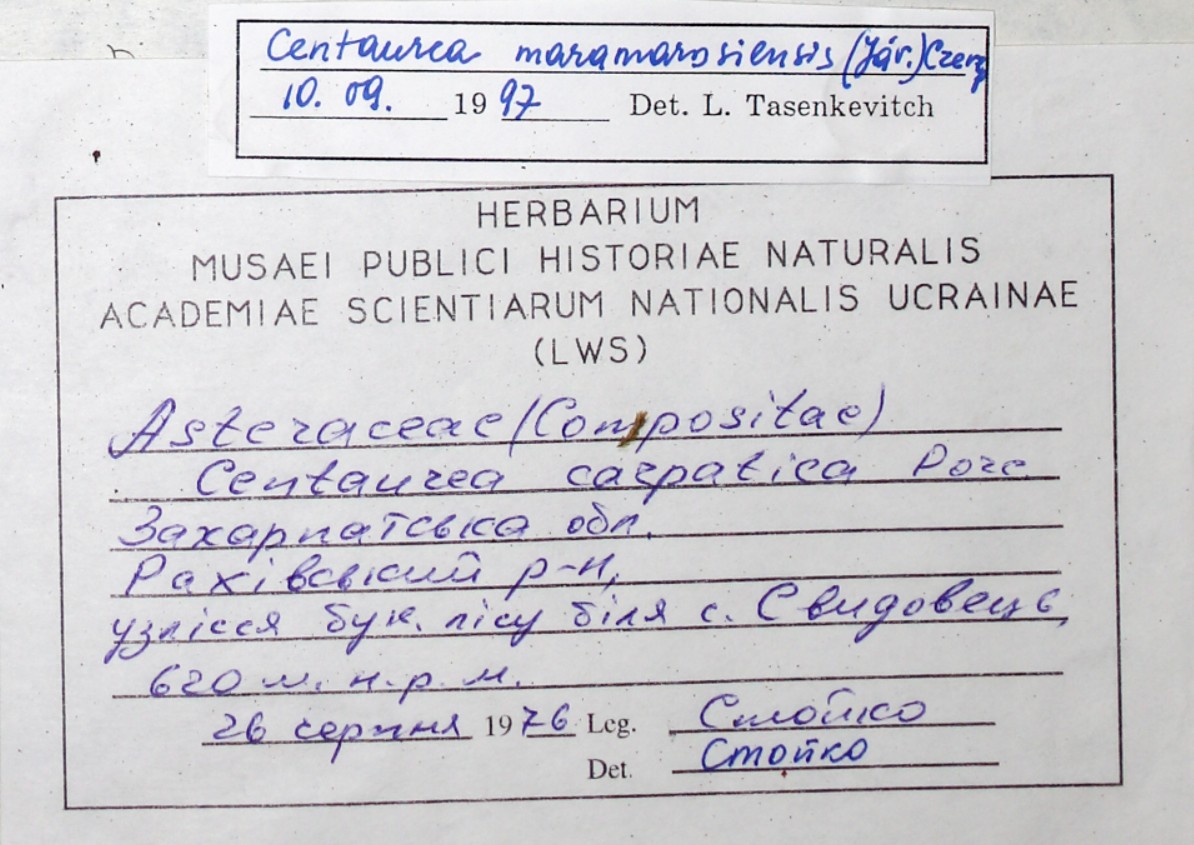 Centaurea maramarosiensis (Jáv.) Czerep
10. 09. 1997 Det. L. Tasenkevitch
HERBARIUM
MUSAEI PUBLICI HISTORIAE NATURALIS
ACADEMIAE SCIENTIARUM NATIONALIS UCRAINAE
(LWS)
Asteraceae (Compositae)
Centaurea carpatica Porc.
Закарпатська обл.
Рахівський р-н,
узлісся бук. лісу біля с. Свидовець,
620 м. н.р.м.
26 серпня 1976 Leg. Стойко
Det. Стойко